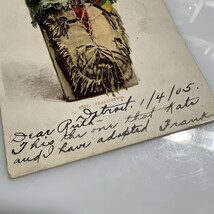 Detroit. 1/4/05.
Dear Ruth—
This the one that Kate
and I have adopted Frank